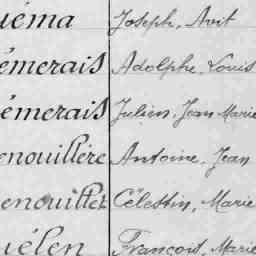 uéma Joseph, Avit
émerais Adolphe, Louis
émerais Julien, Jean Marie
enouillère Antoine, Jean
enouillet Célestin, Marie
uélen François, Marie